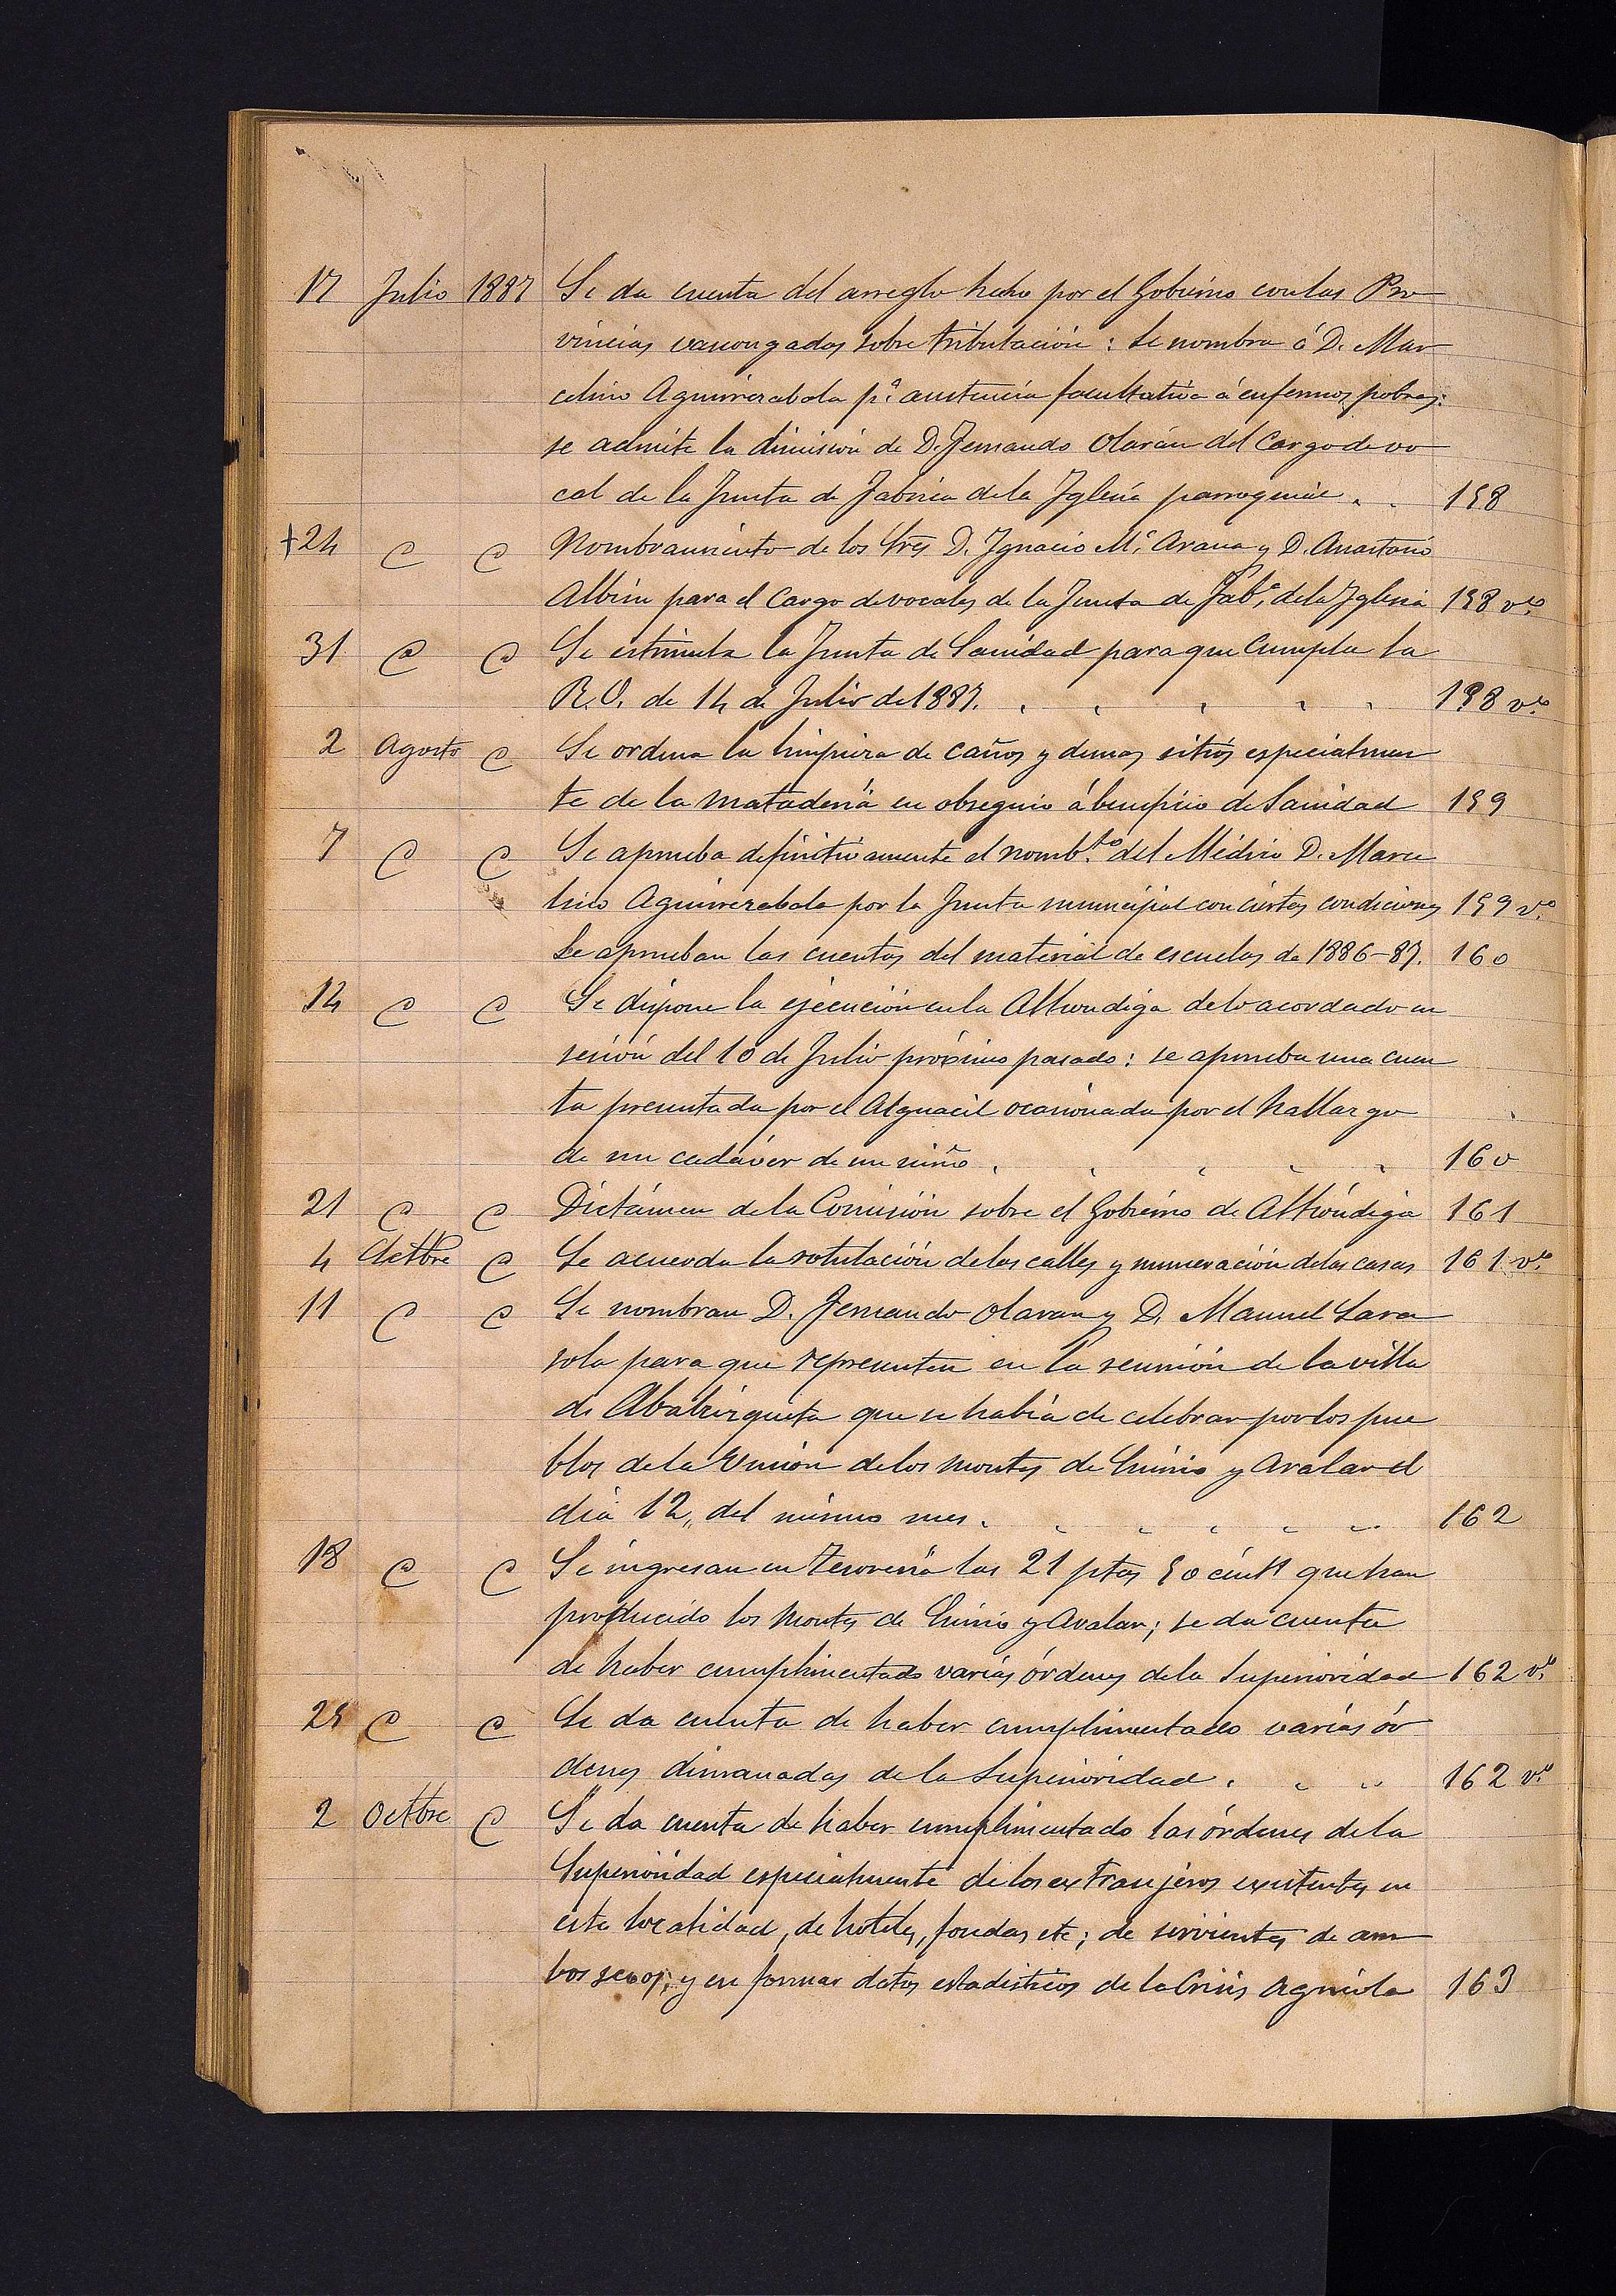 17 Julio 1887 Se da cuenta del arreglo hecho por el Gobierno con las Pro
vincias vascongadas sobre tributación: se nombra á D. Mar
celino Aguirrezabala pª asistencia facultativa á enfermos pobres:
se admite la dimisión de D. Fernando Olarán del cargo de vo
cal de la Junta de Fábrica de la Yglesia parroquial . . 158
+24 " " Nombramiento de los Sres D. Ygnacio Mª Arana y D. Anastasio
Albisu para el cargo de vocales de la Junta de Fabª de la Yglesia 158 vto
31 " " Se estimula la Junta de Sanidad para que cumpla la
R.O. de 14 de Julio de 1887. . . . . . 158 vto
2 Agosto " Se ordena la limpieza de caños y demas sitios especialmen
te de la matadería en obsequio á beneficio de Sanidad 159
7 " " Se aprueba definitivamente el nombto del Médico D. Marce
lino Aguirrezabala por la Junta municipal con ciertas condiciones 159 vº
Se aprueban las cuentas del material de escuelas de 1886-87. 160
14 " " Se dispone la ejecución en la Alhondiga de lo acordado en
sesión del 10 de Julio próximo pasado: se aprueba una cuen
ta presentada por el Alguacil ocasionada por el hallazgo
de un cadáver de un niño . . . . . 160
21 " " Dictámen de la Comisión sobre el Gobierno de Alhóndiga 161
4 Settbre " Se acuerda la rotulación de las calles y numeración de las casas 161 vto
11 " " Se nombran D. Fernando Olaran y D. Manuel Sara
sola para que representen en la reunión de la villa
de Abalcizqueta que se había de celebrar por los pue
blos de la Unión de los montes de Enirio y Aralar el
día 12,, del mismo mes. . . . . . 162
18 " " Se ingresan en Tesorería las 21 ptas 50 cénts que han
producido los montes de Enirio y Aralar; se da cuenta
de haber cumplimentado varias órdenes de la Superioridad 162 vto
25 " " Se da cuenta de haber cumplimentado varias ór
denes dimanadas de la Superioridad . . . 162 vto
2 Octtbre " Se da cuenta de haber cumplimentado las órdenes de la
Superioridad especialmente de los extranjeros existentes en
esta localidad, de hoteles, fondas etc; de sirvientes de am
bos sexos; y en formar datos estadísticos de la Crisis Agrícola 163